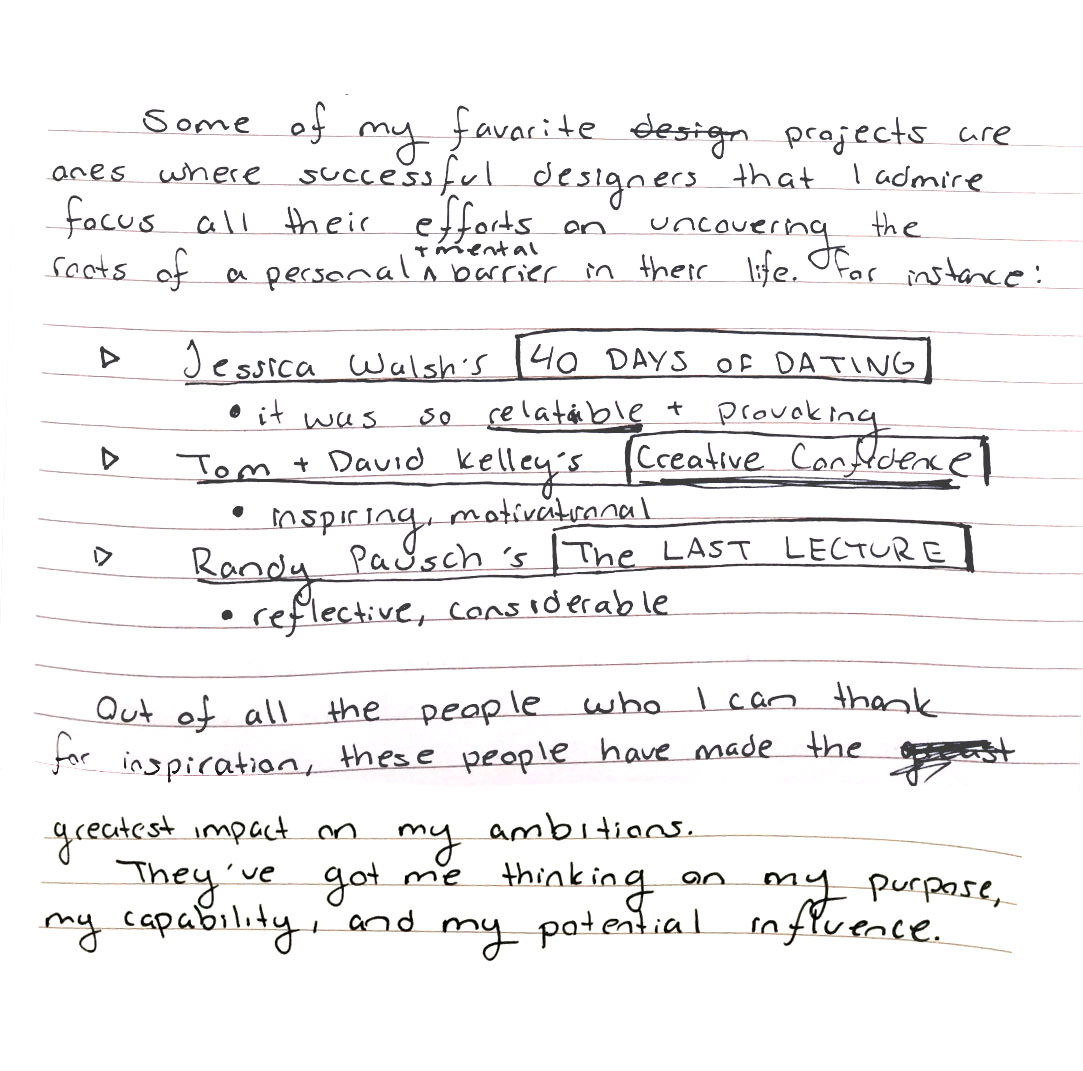 Some of my favorite design projects are
ones where successful designers that I admire
focus all their efforts on uncovering the
+ mental
roots of a personal ^ barrier in their life. For instance:
▷ Jessica Walsh's 40 DAYS OF DATING
• it was so relatable + provoking
▷ Tom + David Kelley's Creative Confidence
• inspiring, motivational
▷ Randy Pausch's The LAST LECTURE
• reflective, considerable
Out of all the people who I can thank
for inspiration, these people have made the
greatest impact on my ambitions.
They've got me thinking on my purpose,
my capability, and my potential influence.